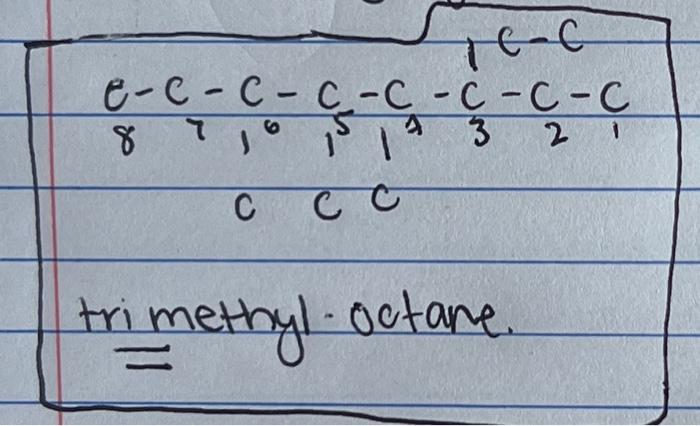 | C - C
C - C - C - C - C - C - C - C
8 7 | 6 | 5 | 4 3 2 1
C C C
trimethyl - octane.